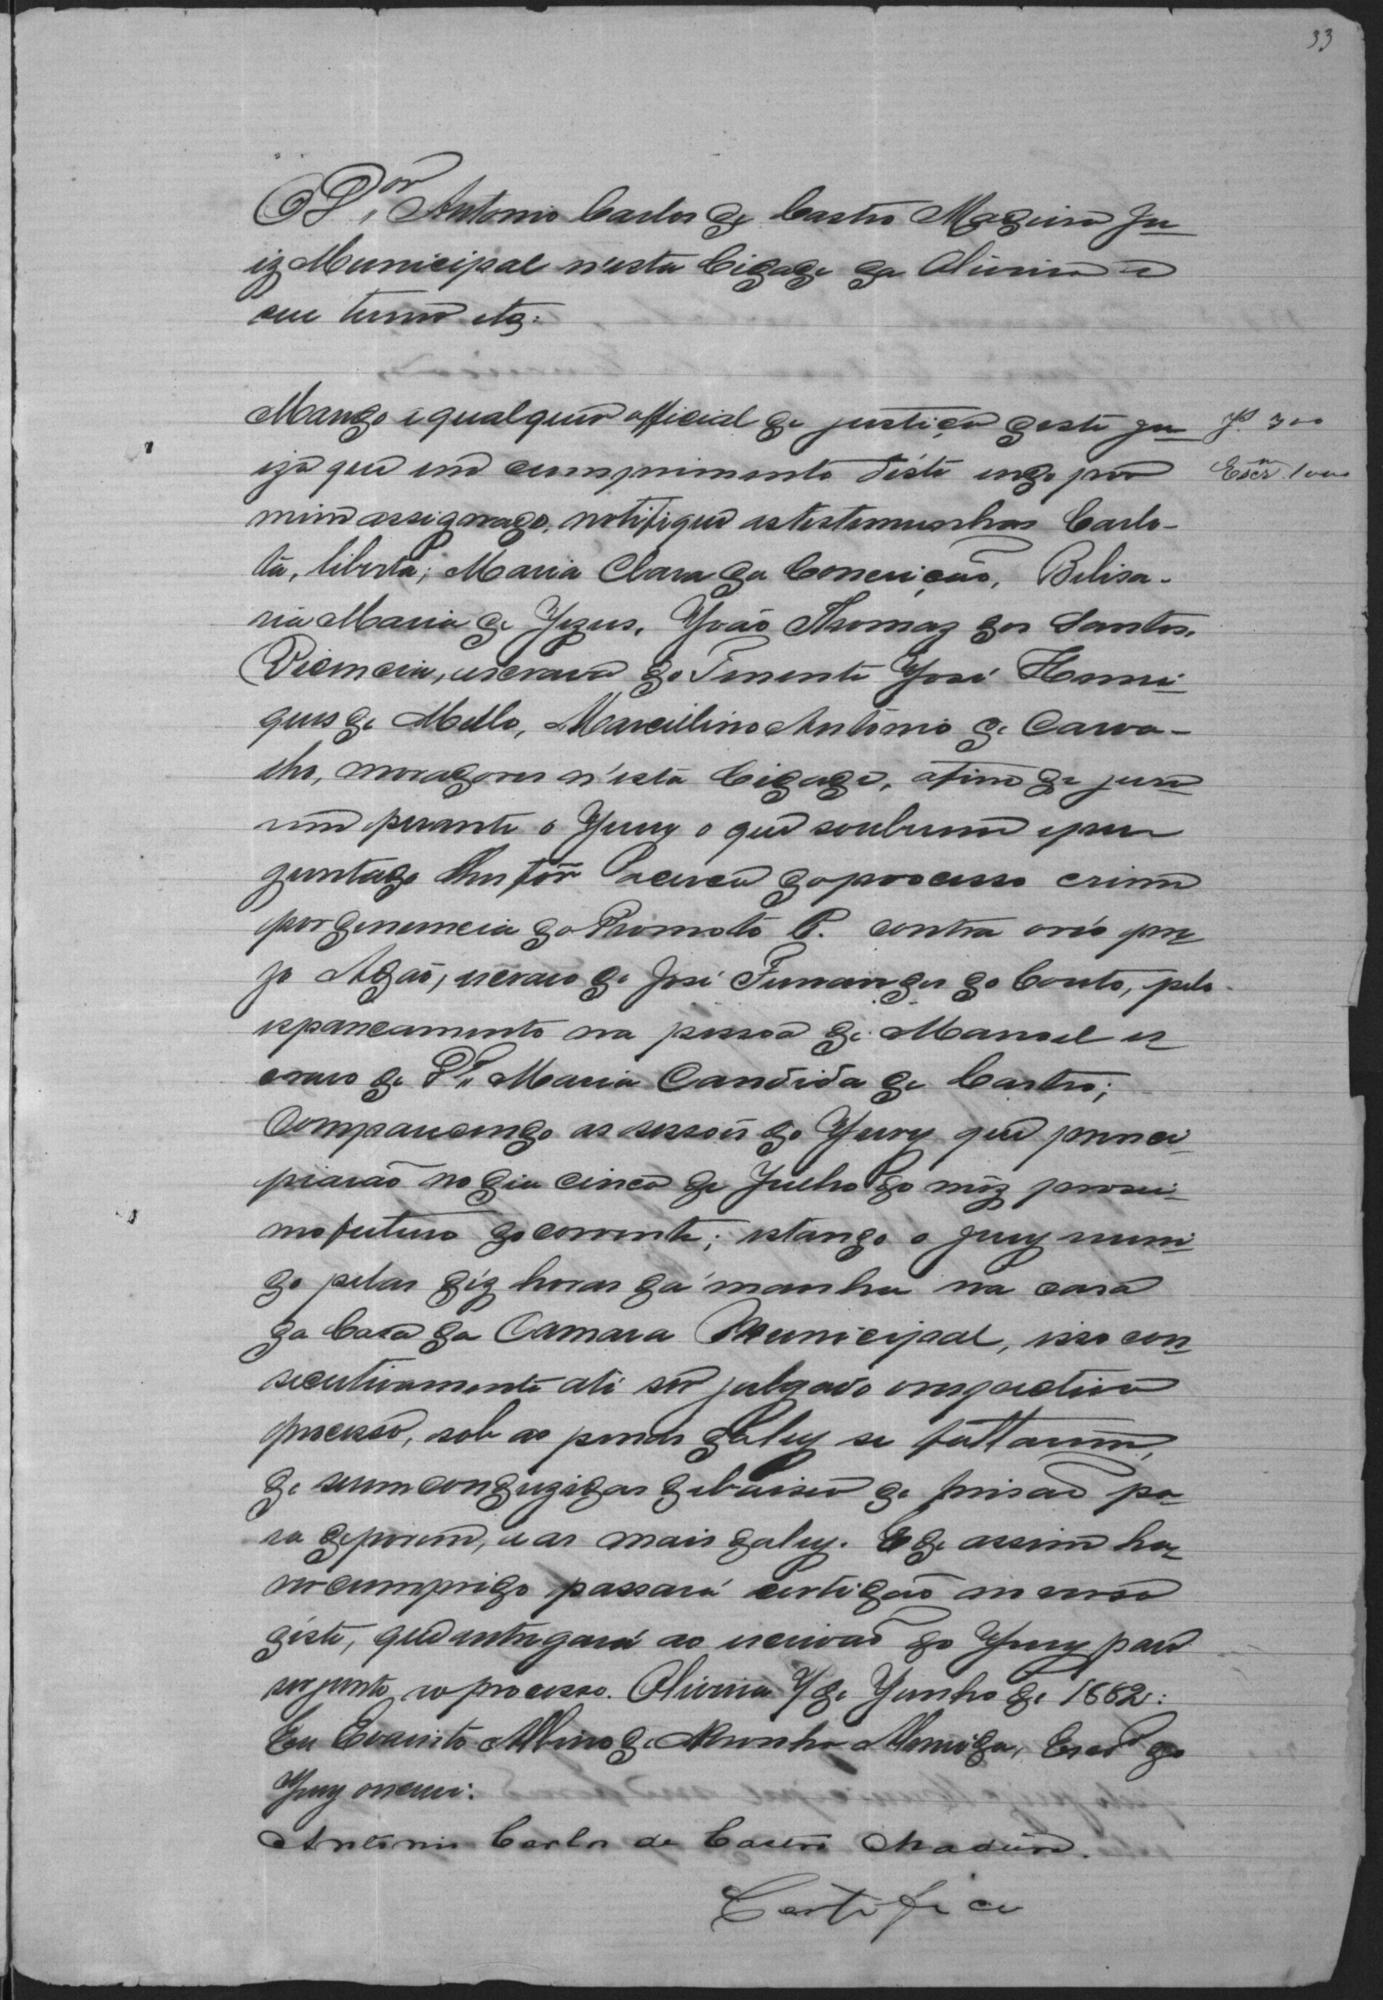 33
O Dor Antonio Carlos de Castro Madeira Ju-
iz Municipal n'esta Cidade da Oliveira e
seu termo etc:
Mando a qualquer official de justiça deste ju- Js. 300
izo que em cumprimento déste indo por Escr.m 1000
mim assignado, notifique as testemunhas Carlo-
ta, liberta; Maria Clara da Conceição, Belisa-
ria Maria de Jezus, João Thomaz dos Santos,
Vicencia, escrava do Tenente José Henri-
ques de Mello, Marcillino Antonio de Carva-
lho, moradores n'esta Cidade, afim de jura-
rem perante o Jury o que souberem e per-
guntado lhes fôr acerca do processo crime
por denuncia do Promoto P. contra o réo pre-
zo Adão, escravo de José Fernandes do Couto, pelo
espancamento na pessoa de Manoel es-
cravo de Da. Maria Candida de Castro;
Comparecendo as sessoẽs do Jury que princi-
piarão no dia cinco de Julho do mêz proxi-
mo futuro do corrente; estando o jury reuni-
do pelas déz horas da manha na casa
da Casa da Camara Municipal, isso con-
secutivamente até ser julgado o respectivo
processo, sob as penas da ley se faltarem,
de serem conduzidas debaixo de prisaõ pa-
ra deporem, e as mais da ley. E de assim ha-
ver cumprido passará certidaõ no verso
déste, que entregará ao escrivaõ do Jury para
ser junto ao processo. Oliveira 7 de Junho de 1882:
Eu Evaristo Albino de Noronha Almeida, Escr.m do
Jury o escrevi:
Antonio Carlos de Castro Madeira.
Certifico